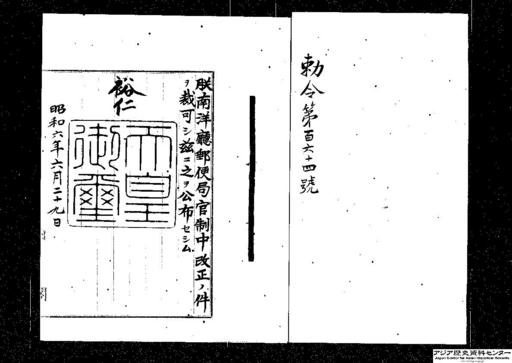 勅令第百六十四號
朕南洋廳郵便局官制中改正ノ件
ヲ裁可シ茲ニ之ヲ公布セシム
裕仁
天皇
御璽
昭和六年六月二十九日
アジア歴史資料センター
Japan Center for Asian Historical Records